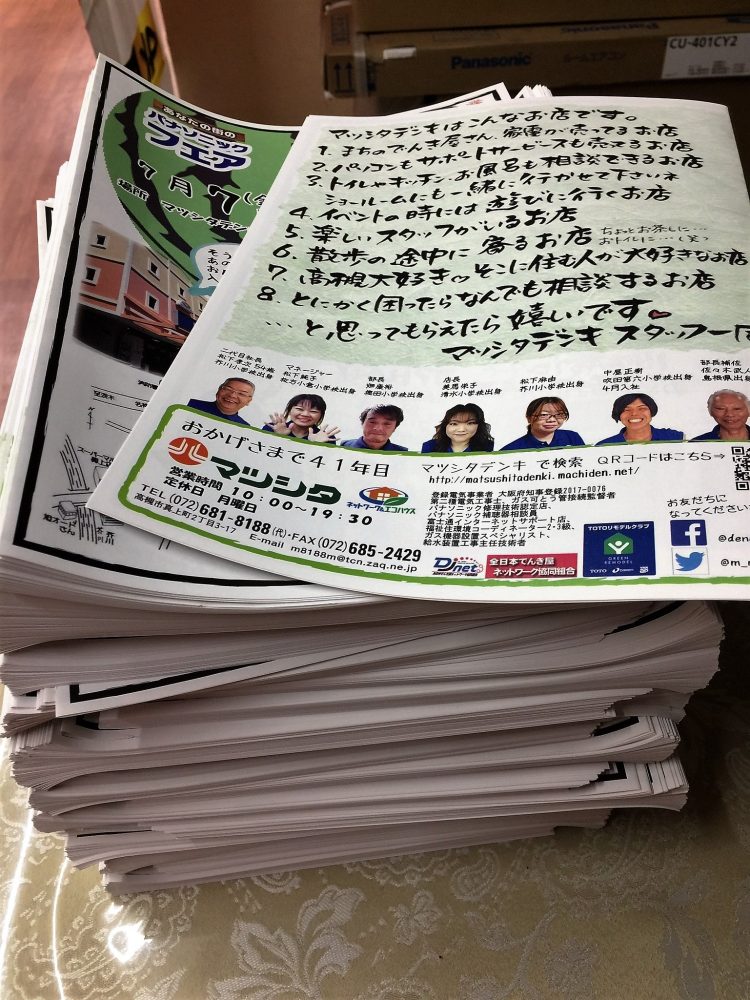 Panasonic
ルームエアコン
CU-401CY2
あなたの街の
パナソニック
フェア
7月7(金
場所 マツシタデン
マツシタデンキはこんなお店です。
1. まちのでんき屋さん、家電が売ってるお店
2. パソコンもサポートサービスも売てるお店
3. トイレやキッチン、お風呂も相談できるお店
ショールームにも一緒に行かせて下さいネ
4. イベントの時には遊びに行くお店
5. 楽しいスタッフがいるお店
6. 散歩の途中に寄るお店 ちょっとお茶しに…
おトイレに…(笑)
7. 高槻大好き♡そこに住む人が大好きなお店
8. とにかく困ったらなんでも相談するお店
…と思ってもらえたら嬉しいです♥
マツシタデンキ スタッフ一同
二代目社長
松下孝次 54歳
芥川小学校出身
マネージャー
松下純子
枚方小倉小学校出身
部長
畑康裕
奥田小学校出身
店長
清水小学校出身
松下麻由
芥川小学校出身
中屋正樹
吹田第六小学校出身
4月入社
部長補佐
佐々木武
島根県出身
おかげさまで41年目
マツシタ
ネットワーク&エコハウス
営業時間 10:00〜19:30
定休日 月曜日
TEL(072)681-8188(代)・FAX(072)685-2429
高槻市真上町2丁目3-17
E-mail m8188m@tcn.zaq.ne.jp
マツシタデンキ で検索 QRコードはこちら⇒
http://matsushitadenki.machiden.net/
登録電気事業者 大阪府知事登録2017-0076
第二種電気工事士、ガス可とう管接続監督者
パナソニック修理技術認定店、
パナソニック補聴器相談員
富士通インターネットサポート店、
福祉住環境コーディネーター2・3級、
ガス機器設置スペシャリスト、
給水装置工事主任技術者
D net
全日本でんき屋
ネットワーク協同組合
TOTOリモデルクラブ
GREEN REMODEL
TOTO
お友だちに
なってください
@den
@m_m